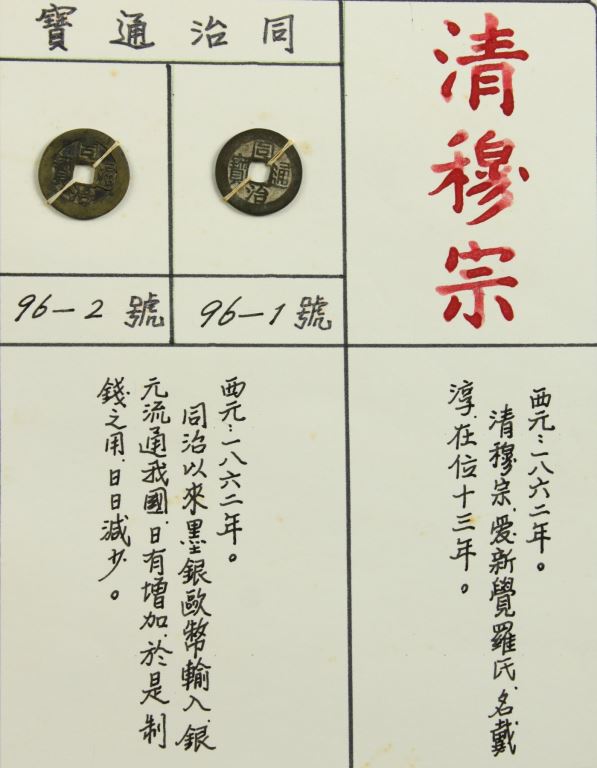 清穆宗
同治通寶
96-1號
96-2號
同治通寶
西元:一八六二年。
清穆宗.愛新覺羅氏.名戴
淳.在位十三年。
西元:一八六二年。
同治以來墨銀歐幣輸入.銀
元流通我國.日有增加.於是制
錢之用.日日減少。